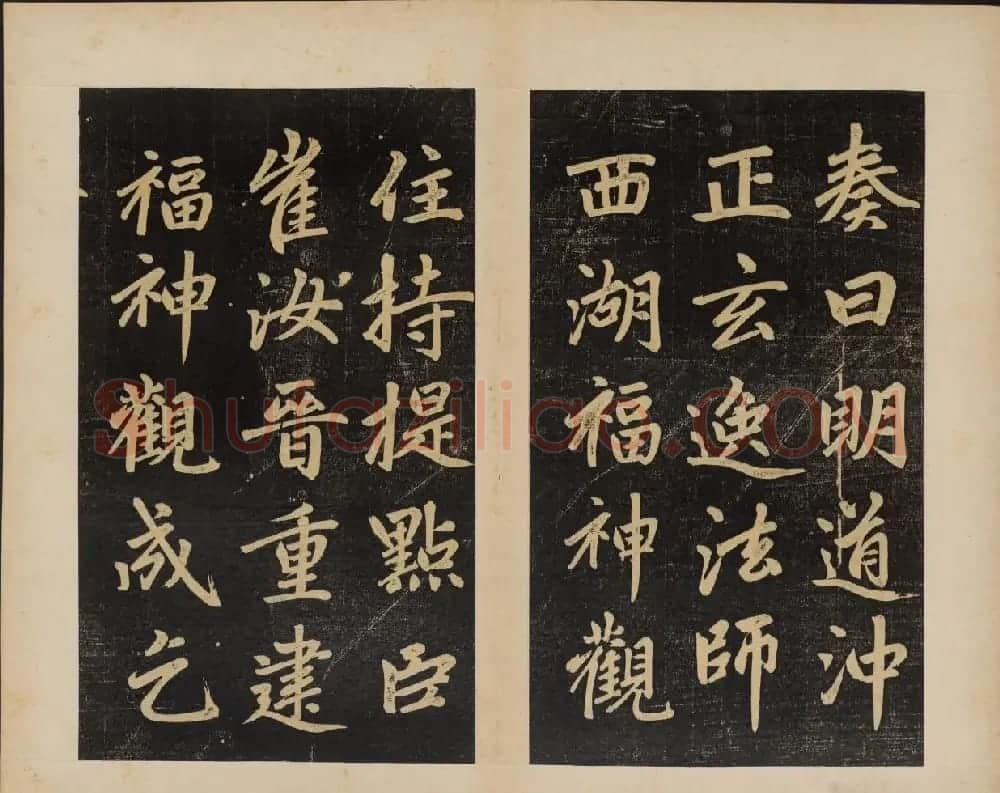 奏曰明道沖
正玄逸法師
西湖福神觀
住持提點臣
崔汝晉重建
福神觀成乞
Shufaziliao.COM